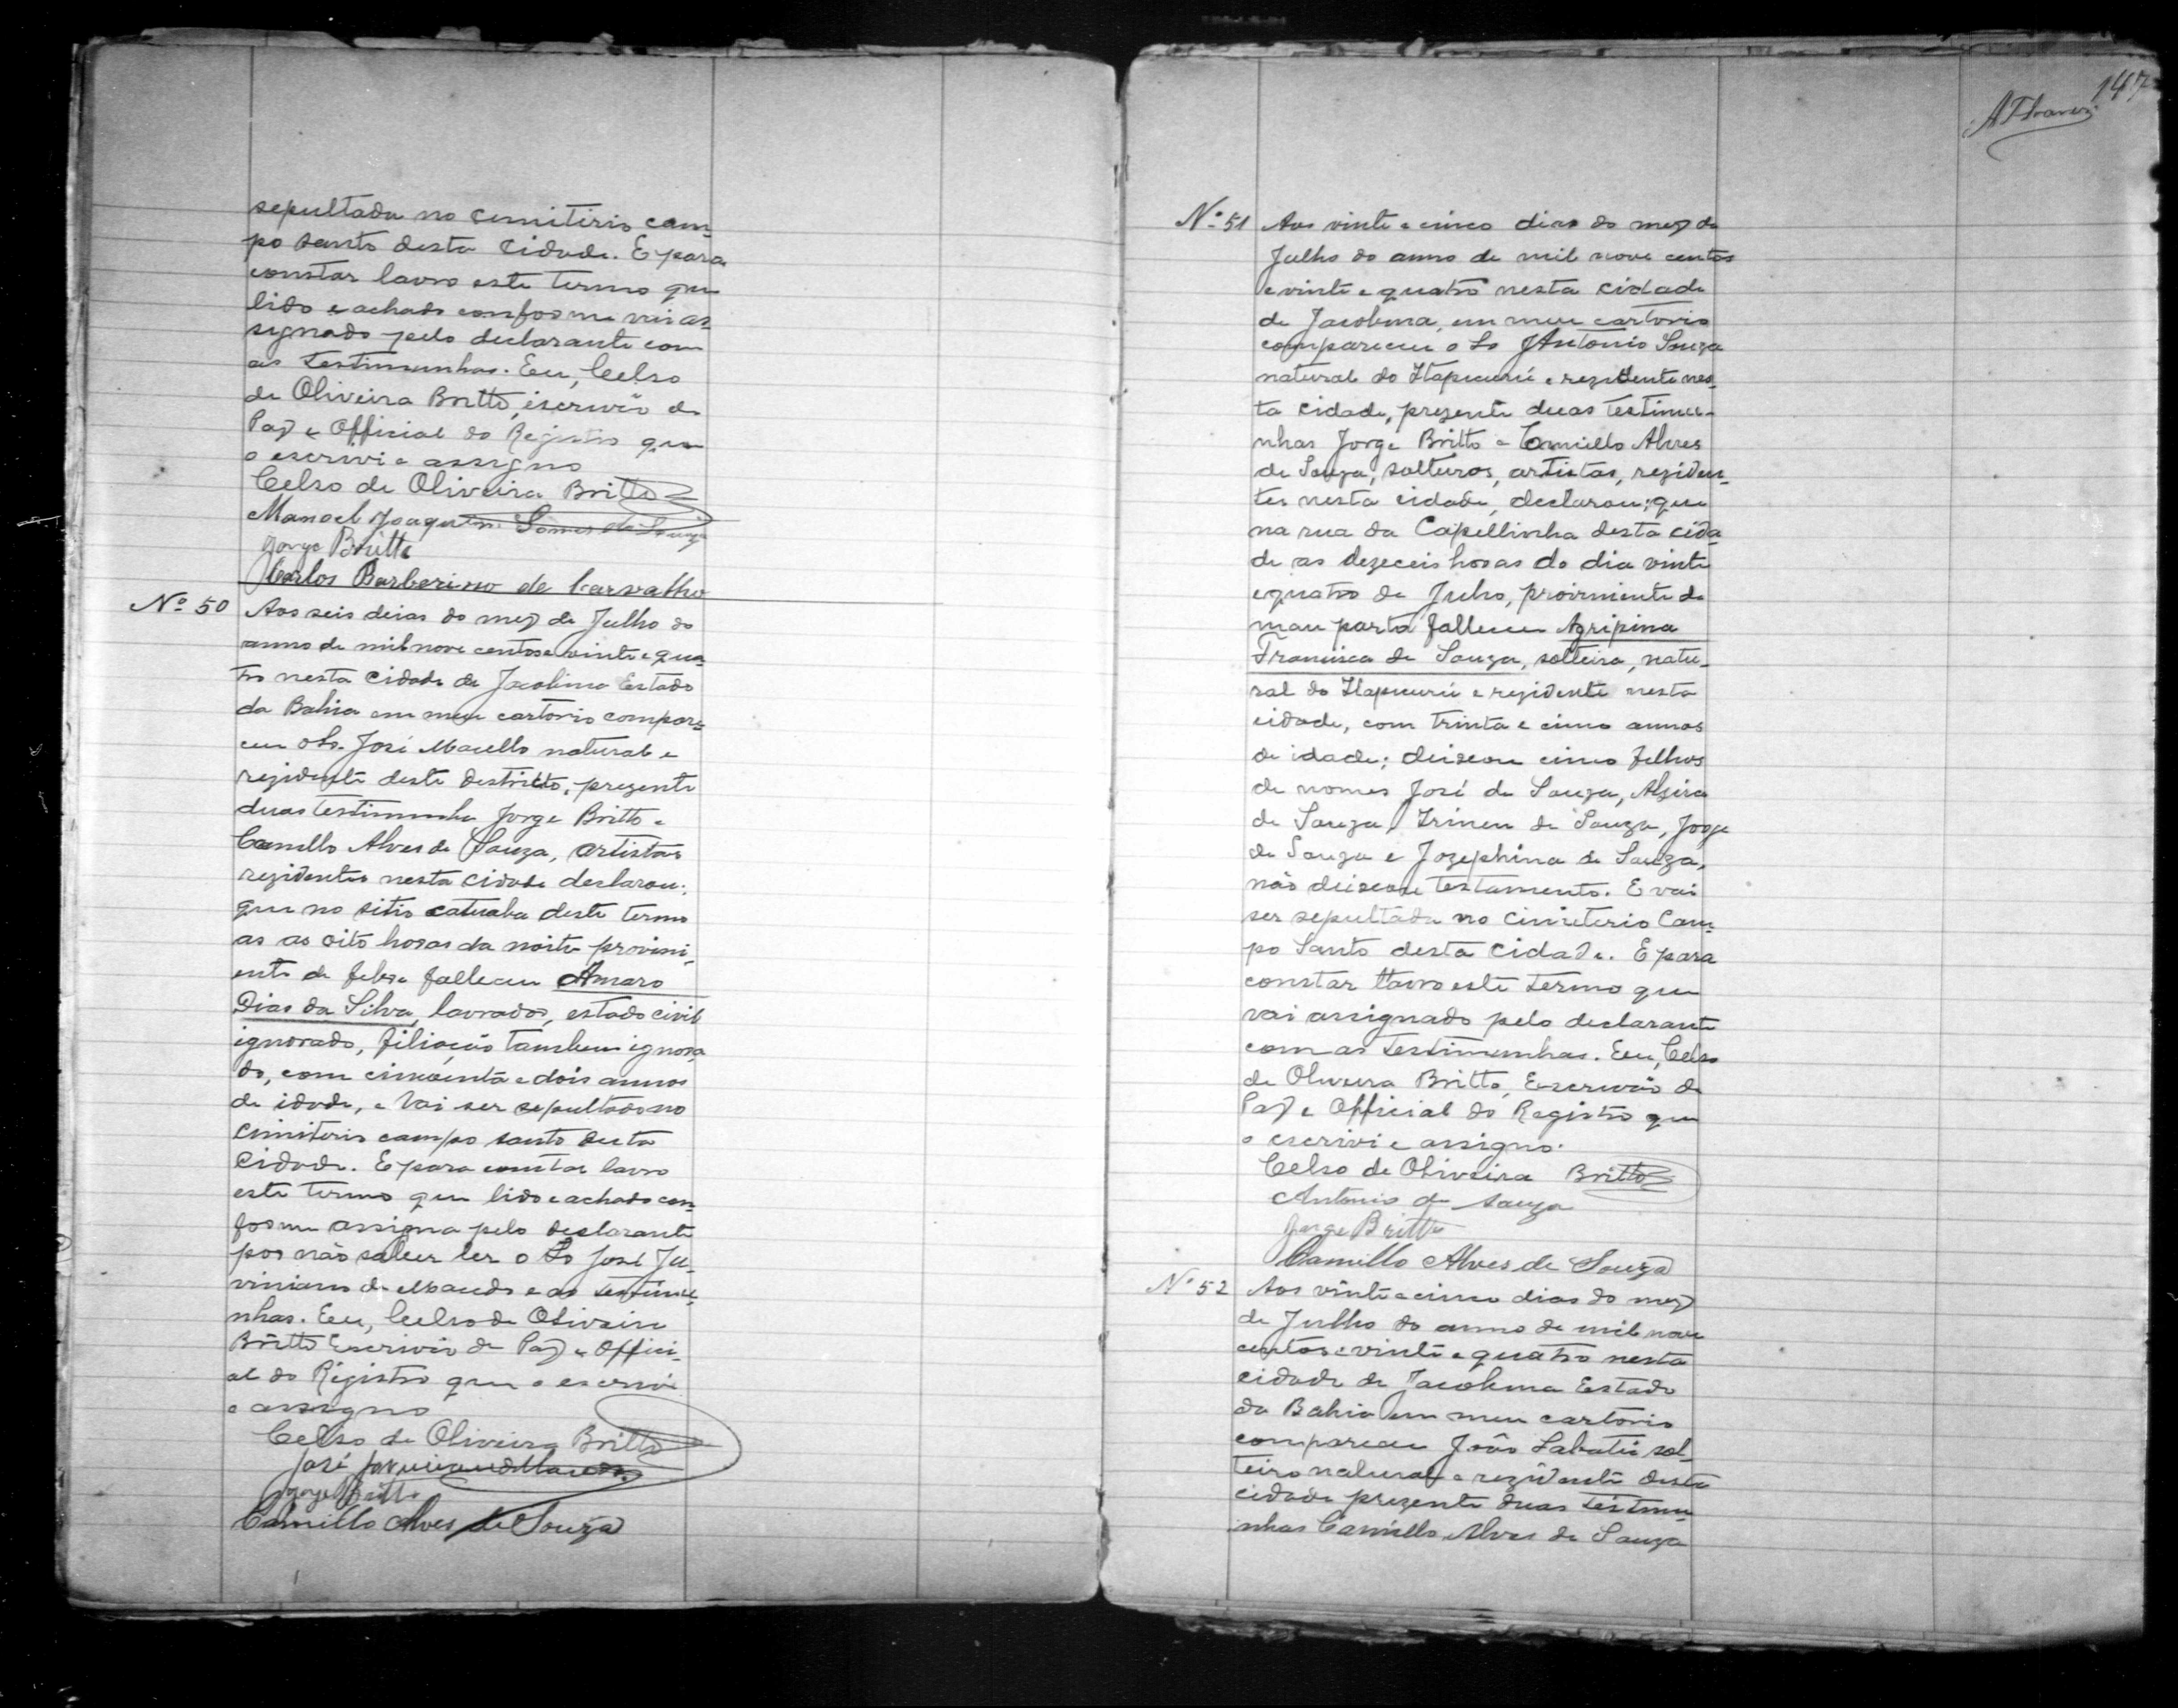 sepultada no cemitirio cam-
po santo desta cidade. E para
constar lavro este termo que
lido e achado conforme vai as-
signado pelo declarante com
as testimunhas. Eu, Celso
de Oliveira Britto, iscrivão de
Paz e Official do Registro que
o escrivi e assigno
Celso de Oliveira Britto
Manoel Joaquim Gomes de Souza
Jorge Britto
Carlos Barberino de Carvalho
Nº 50 Aos seis deias do mez de Julho do
anno de mil nove centos e vinte e qua-
tro nesta Cidade de Jacobina Estado
da Bahia em meu cartorio compare-
ceu o Sr. José Macello natural e
rezidente deste destricto, prezente
duas testimunha Jorge Britto e
Camillo Alves de Souza, artistas
rezidentes nesta cidade declarou;
que no sitio catuaba deste termo
as as oito horas da noite provini-
ente de febre falleceu Amaro
Dias da Silva, lavrador, estado civil
ignorado, filiação tambem ignora-
do, com cincoenta e dois annos
de idade, e vai ser sepultado no
cimiterio campo santo desta
Cidade. E para constar lavro
este termo que lido e achado con-
forme assigna pelo declarante
por não saber ler o Sr José Ju-
viniano de Macedo e as testimu-
nhas. Eu, Celso de Oliveira
Britto Escrivão de Paz e Offici-
al do Registro que o escrivi
e assigno
Celso de Oliveira Britto
José Juviniano d Macedo
Jorge Britto
Camillo Alves de Souza
147
Nº 51 Aos vinte e cinco dias do mez de
Julho do anno de mil nove centos
e vinte e quatro nesta cidade
de Jacobina, em meu cartorio
compareceu o Sr Antonio Souza
natural do Itapicurú e rezidente nes-
ta cidade, prezente duas testimu-
nhas Jorge Britto e Camillo Alves
de Souza, solteiros, artistas, reziden-
tes nesta cidade, declarou; que
na rua da Capellinha desta cida-
de as dezeceis horas do dia vinte
e quatro de Julho, proviniente de
mau parto falleceu Agripina
Francisca de Souza, solteira, natu-
ral do Itapicurú e rezidente nesta
cidade, com trinta e cinco annos
de idade; deixou cinco filhos
de nomes José de Souza, Alzira
de Souza, Irineu de Souza, Jorge
de Souza e Jozephina de Souza,
não deixou testamento. E vai
ser sepultada no cimeterio Cam-
po Santo desta Cidade. E para
constar lavro este termo que
vai assignado pelo declarante
com as testimunhas. Eu, Celso
de Oliveira Britto, Escrivão de
Paz e Official do Registro que
o escrivi e assigno.
Celso de Oliveira Britto
Antonio de Souza
Jorge Britto
Camillo Alves de Souza
Nº 52 Aos vinte e cinco dias do mez
de Julho do anno de mil nove
centos e vinte e quatro nesta
cidade de Jacobina Estado
da Bahia em meu cartorio
compareceu João Sol-
teiro natural e rezidente desta
cidade prezente duas testimu-
nhas Camillo Alves de Souza